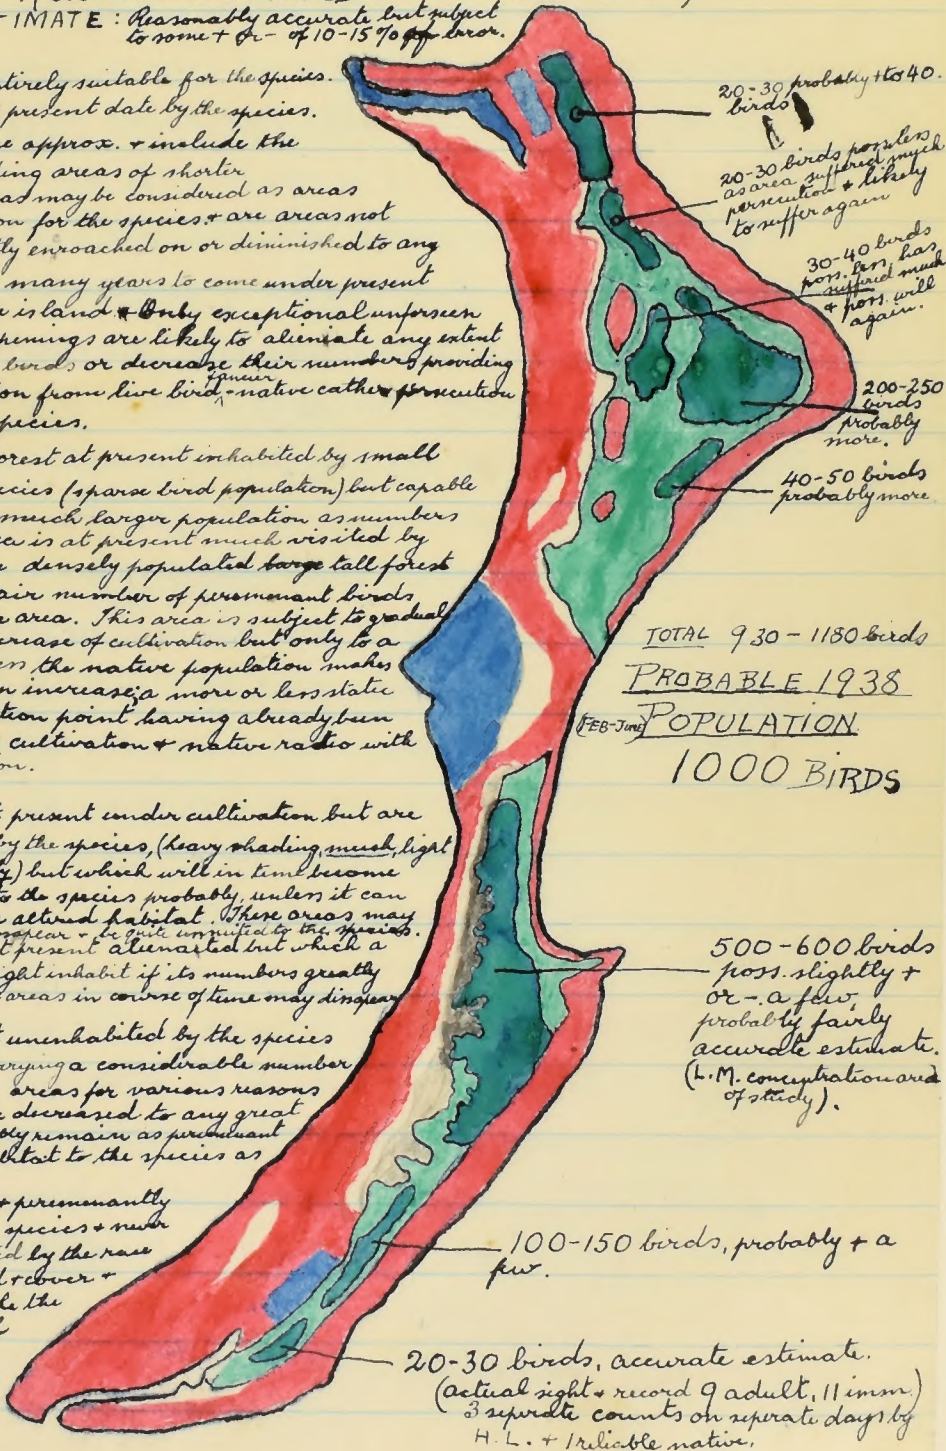 TIMATE : Reasonably accurate but subject
to some + or - of 10-15% of error.
ntirely suitable for the species.
present date by the species.
e approx. + include the
ing areas of shorter
as may be considered as areas
on for the species + are areas not
tly enroached on or diminished to any
many years to come under present
island + Only exceptional unforseen
penings are likely to alieniate any extent
birds or decrease their numbers providing
on from live bird fancier - native cather persecution
pecies.
orest at present inhabited by small
ecies (sparse bird population) but capable
much larger population as numbers
ea is at present much visited by
densely populated large tall forest
air number of peremenant birds
area. This area is subject to gradual
crease of cultivation but only to a
ess the native population makes
n increase; a more or less static
tion point having already been
cultivation + native radio with
on.
t present under cultivation but are
by the species, (heavy shading, much, light
) but which will in time become
to the species probably, unless it can
altered habitat. These areas may
sapear + be quite unsuited to the species.
t present alienated but which a
ight inhabit if its numbers greatly
areas in course of time may disapear
unenhabited by the species
rrying a considerable number
areas for various reasons
e decreased to any great
bly remain as peremenant
bitat to the species as
+ peremenantly
species + never
ed by the race
d + cover +
ke the
20-30 probably + to 40.
birds
20-30 birds poss. less
as area suffered much
persecution + likely
to suffer again
30-40 birds
poss. less, has
suffered much
+ poss. will
again.
200-250
birds
probably
more.
40-50 birds
probably more
TOTAL 930-1180 birds
PROBABLE 1938
(FEB-June) POPULATION
1000 BIRDS
500-600 birds
poss. slightly +
or -. a few,
probably fairly
accurate estimate.
(L.M. concentration area
of study).
100-150 birds, probably + a
few.
20-30 birds, accurate estimate.
(actual sight + record 9 adult, 11 imm.)
3 seperate counts on seperate days by
H.L. + 1 reliable native.